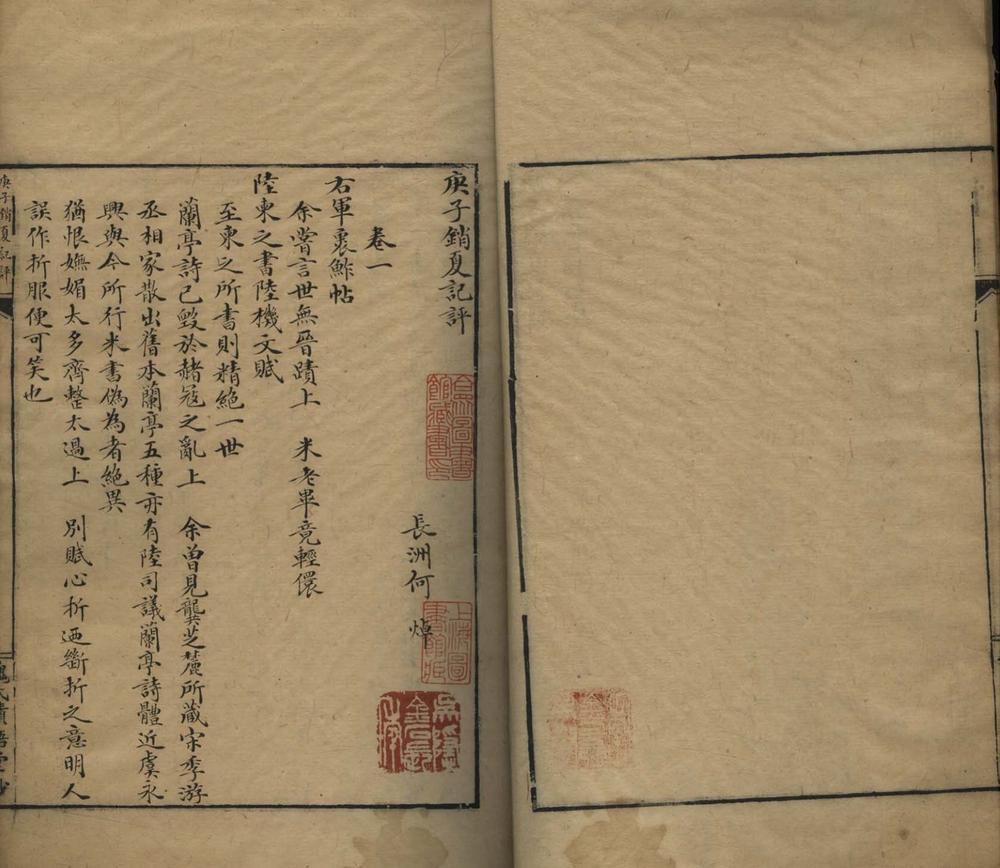 庚子銷夏記評
長洲何 焯
卷一
右軍裹鮓帖
余嘗言世無晉蹟上 米老畢竟輕儇
陸柬之書陸機文賦
至柬之所書則精絕一世
蘭亭詩已毀於赭寇之亂上 余曾見龔芝麓所藏宋季游
丞相家散出舊本蘭亭五種亦有陸司議蘭亭詩體近虞永
興與今所行米書偽為者絕異
猶恨嫵媚太多齊整太過上 別賦心折迺斷折之意明人
誤作折服便可笑也
庚子銷夏記評
合眾圖書館藏書印
上海圖書館藏